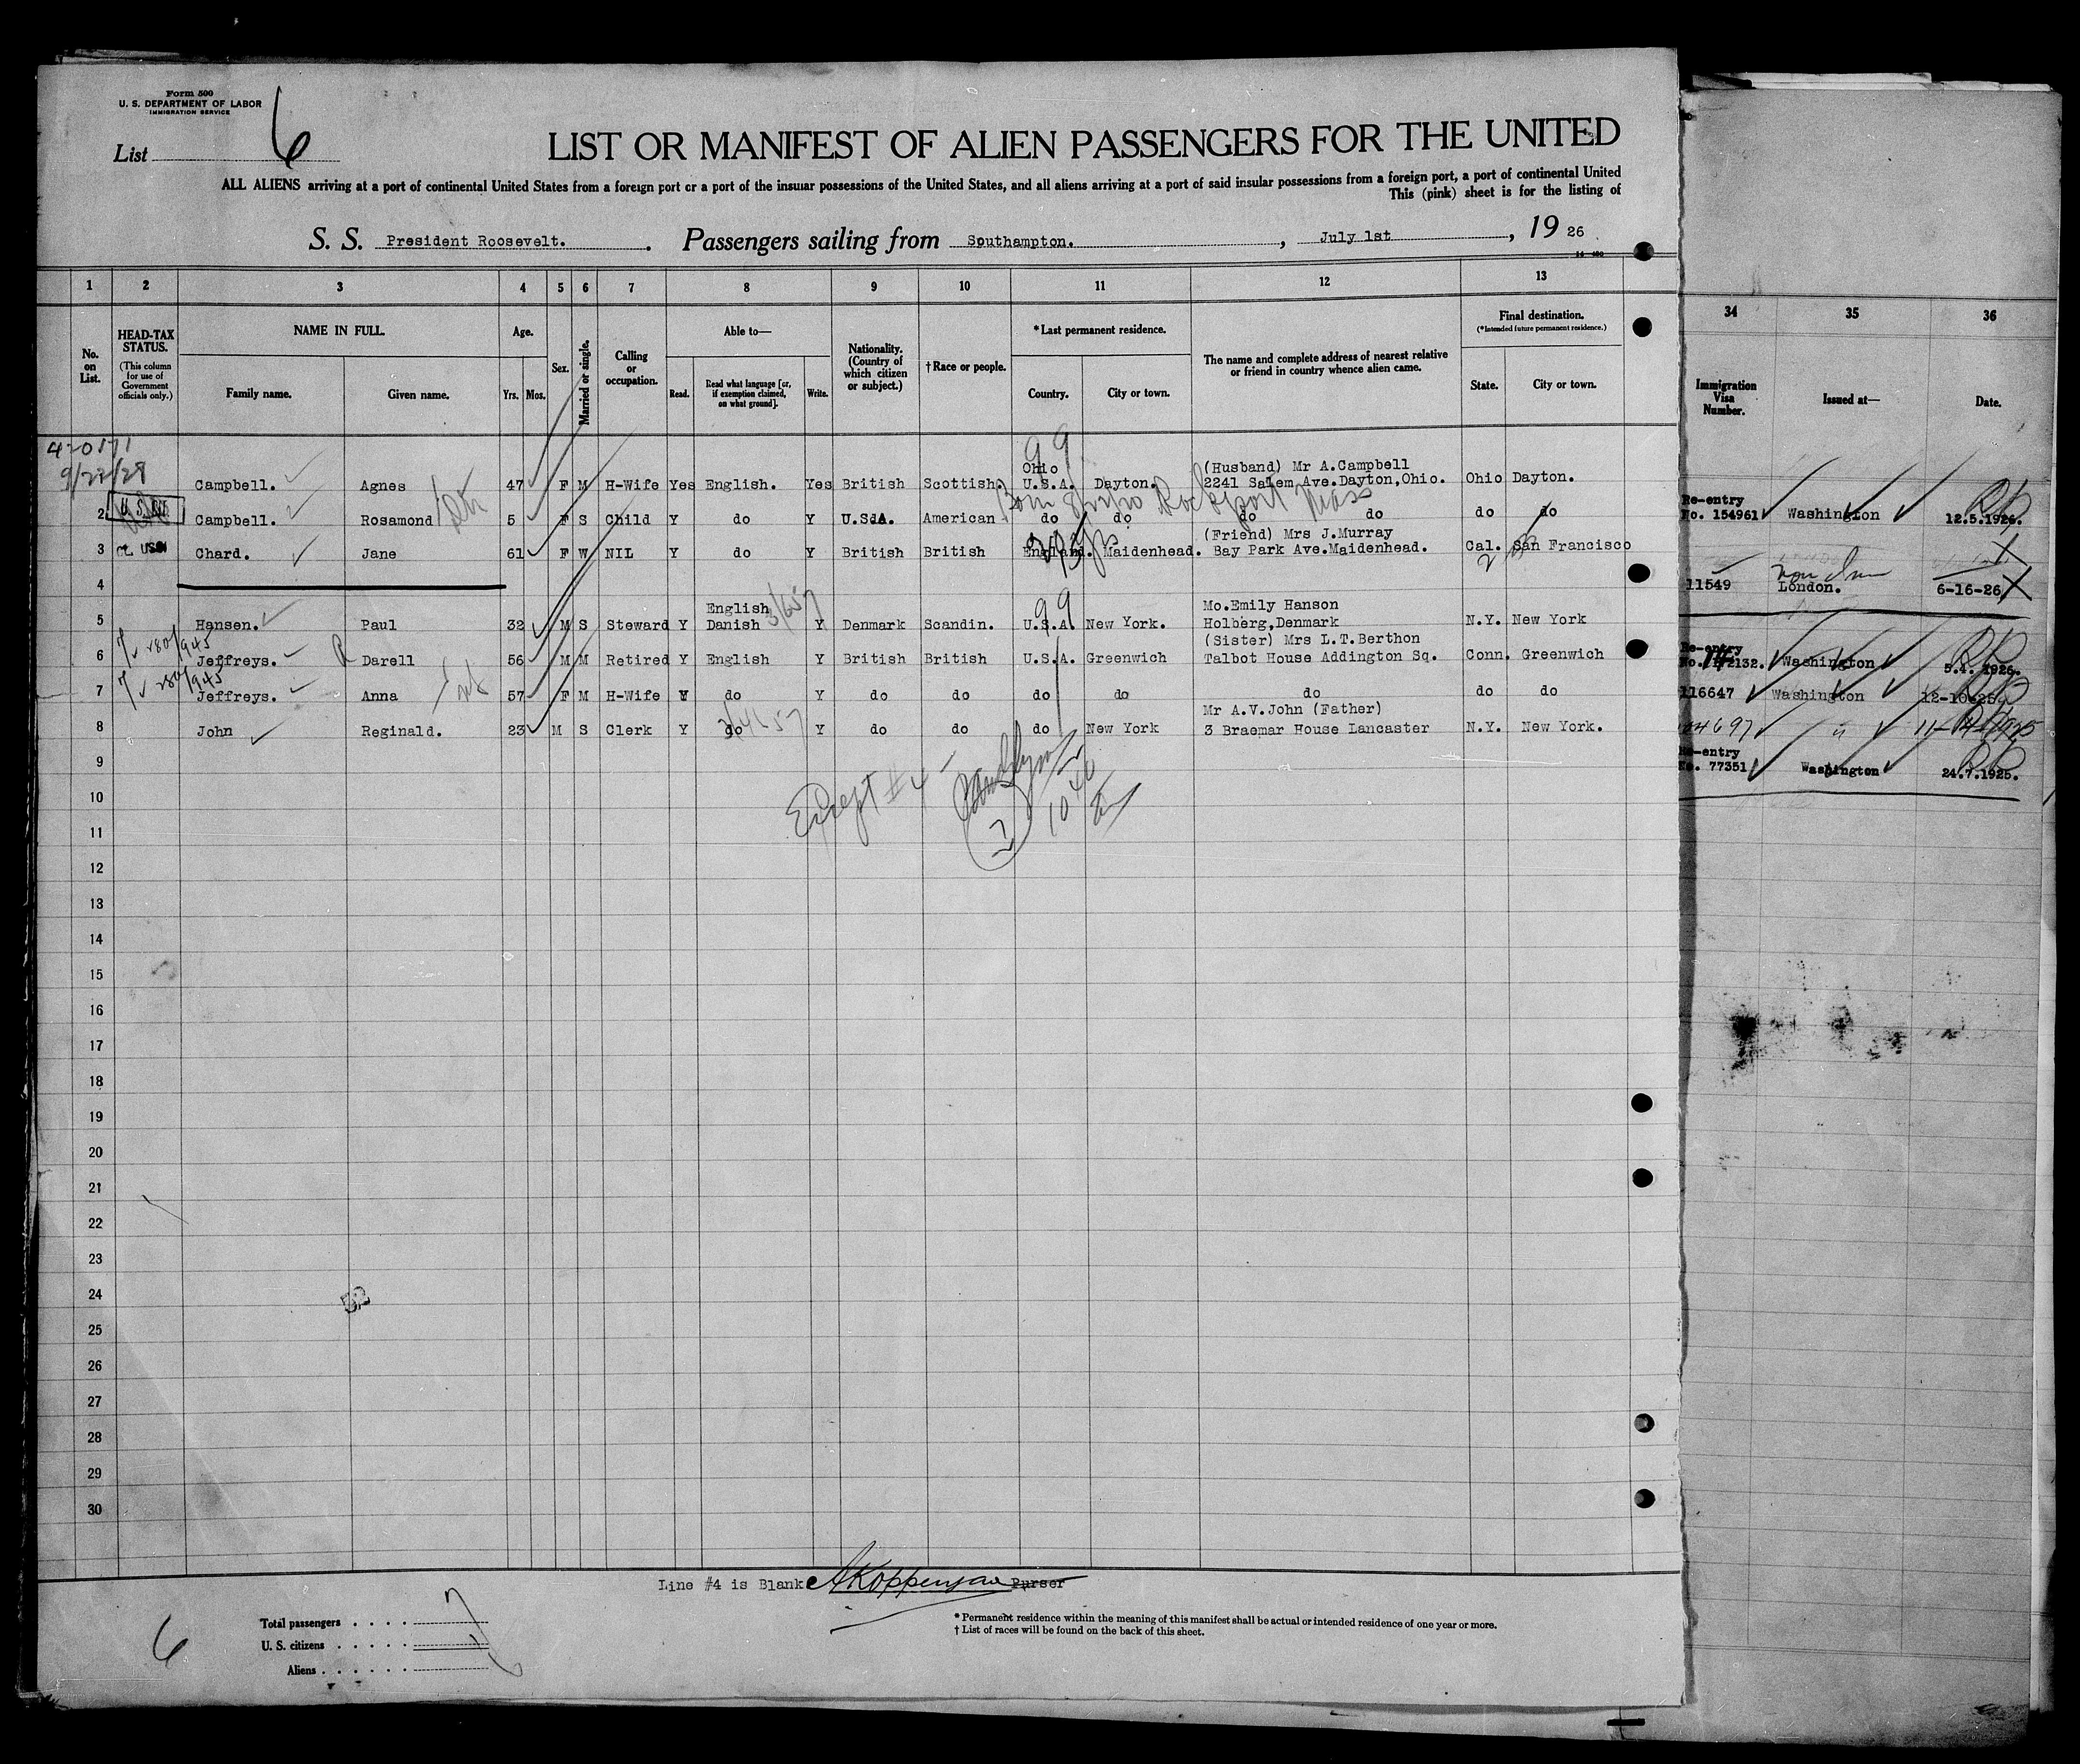 Form 500
U. S. DEPARTMENT OF LABOR
IMMIGRATION SERVICE
List 6
LIST OR MANIFEST OF ALIEN PASSENGERS FOR THE UNITED
ALL ALIENS arriving at a port of continental United States from a foreign port or a port of the insular possessions of the United States, and all aliens arriving at a port of said insular possessions from a foreign port, a port of continental United
This (pink) sheet is for the listing of
S. S. President Roosevelt. Passengers sailing from Southampton. , July 1st , 19 26
1 2 3 4 5 6 7 8 9 10 11 12 13 34 35 36
No. on List. HEAD-TAX STATUS. (This column for use of Government officials only.) NAME IN FULL. Family name. Given name. Age. Yrs. Mos. Sex. Married or single. Calling or occupation. Able to— Read. Read what language [or, if exemption claimed, on what ground]. Write. Nationality. (Country of which citizen or subject.) †Race or people. *Last permanent residence. Country. City or town. The name and complete address of nearest relative or friend in country whence alien came. Final destination. (*Intended future permanent residence.) State. City or town. Immigration Visa Number. Issued at— Date.
9/22/28
99
Ohio (Husband) Mr A.Campbell
Campbell. Agnes 47 F M H-Wife Yes English. Yes British Scottish. U.S.A. Dayton. 2241 Salem Ave.Dayton,Ohio. Ohio Dayton.
Born Rockport Mass
2 Campbell. Rosamond 5 F S Child Y do Y U.S.A. American do do do do do do Re-entry No. 154961 Washington 12.5.1926.
(Friend) Mrs J.Murray
3 Chard. Jane 61 F W NIL Y do Y British British England. Maidenhead. Bay Park Ave.Maidenhead. Cal. San Francisco
4 11549 London. 6-16-26
English Mo.Emily Hanson
5 Hansen. Paul 32 M S Steward Y Danish Y Denmark Scandin. U.S.A. New York. Holberg,Denmark N.Y. New York
(Sister) Mrs L.T.Berthon
6 Jeffreys. R Darell 56 M M Retired Y English Y British British U.S.A. Greenwich Talbot House Addington Sq. Conn. Greenwich Re-entry Washington 5.4.1926.
7 Jeffreys. Anna 57 F M H-Wife Y do Y do do do do do do do 116647 Washington 12-10-25
Mr A.V.John (Father)
8 John Reginald. 23 M S Clerk Y do Y do do do New York 3 Braemar House Lancaster N.Y. New York.
9 Re-entry No. 77351 Washington 24.7.1925.
10
Except #4
11
12
13
14
15
16
17
18
19
20
21
22
23
24
25
26
27
28
29
30
Line #4 is Blank Purser
6
Total passengers 7
U. S. citizens 1
Aliens 6
* Permanent residence within the meaning of this manifest shall be actual or intended residence of one year or more.
† List of races will be found on the back of this sheet.